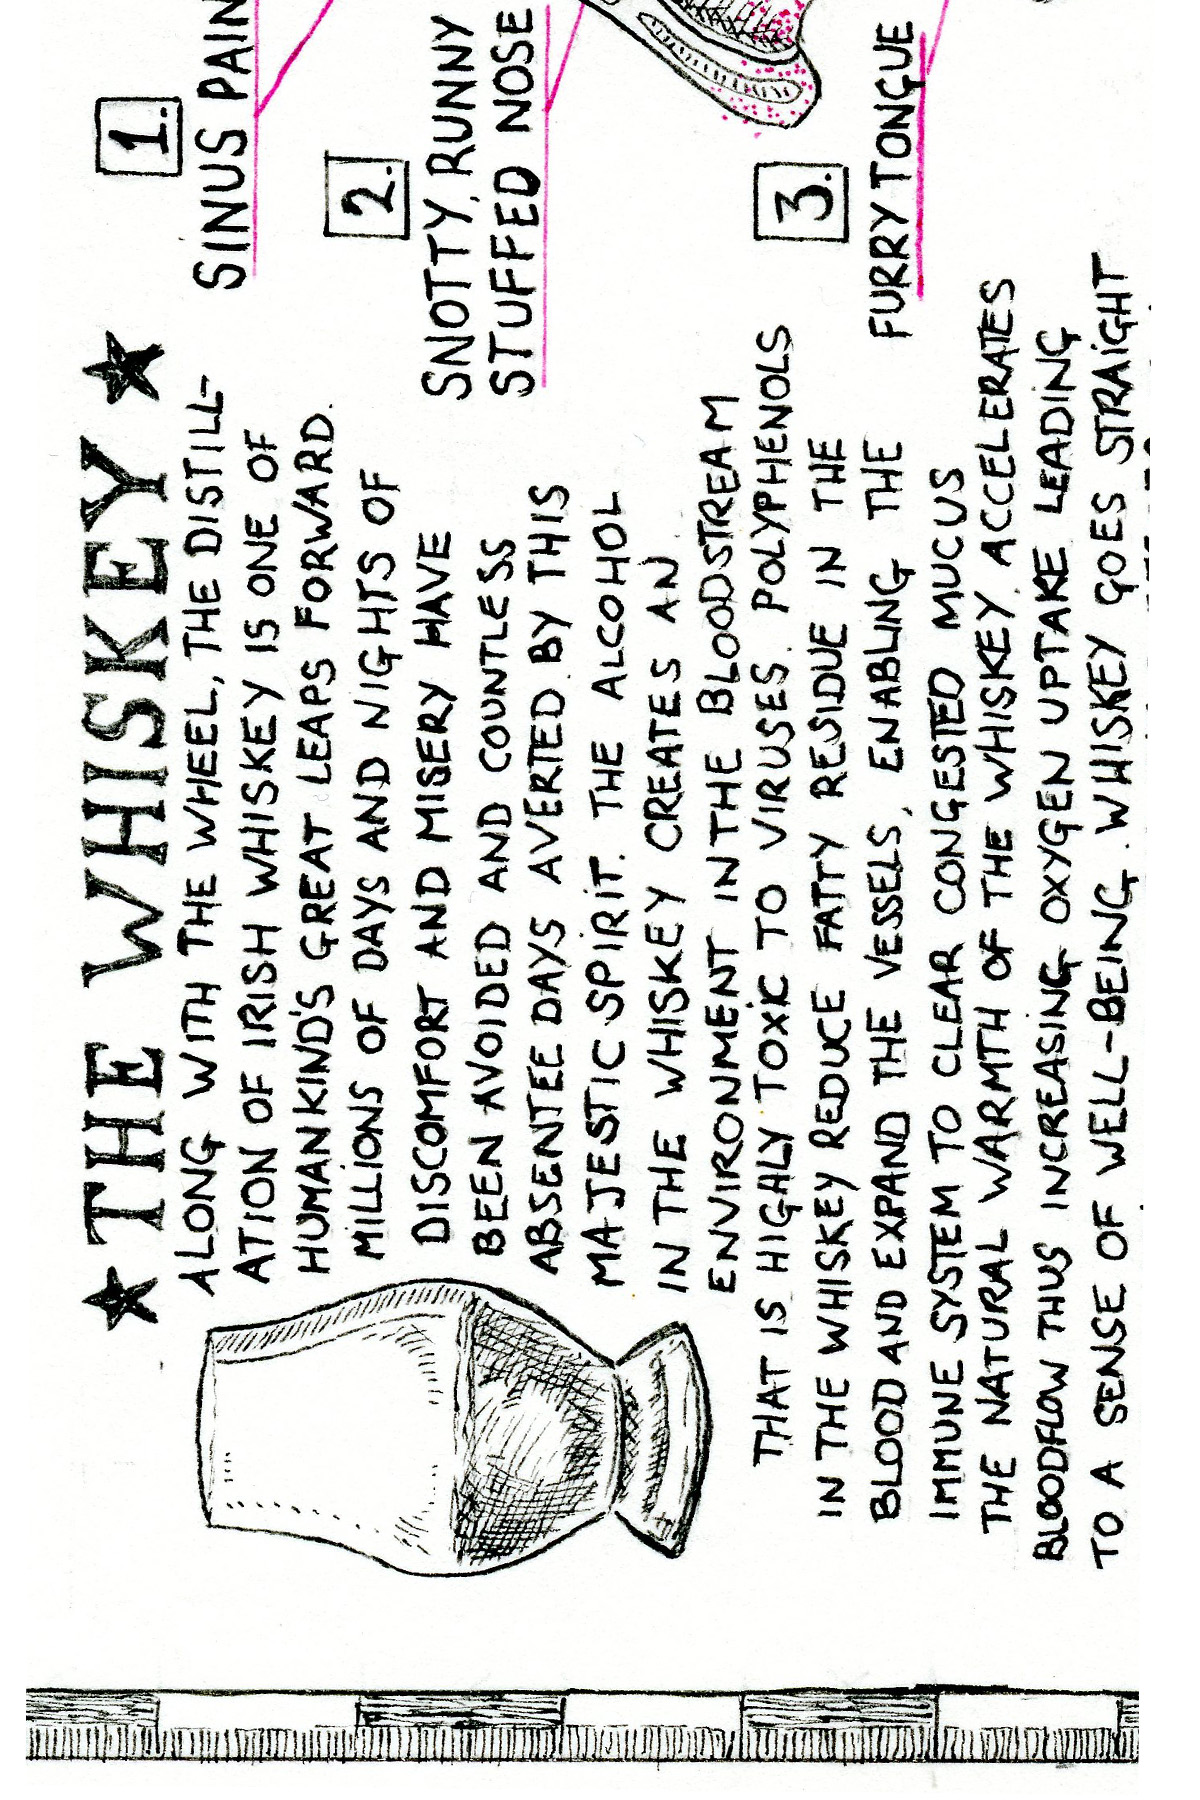 ★ THE WHISKEY ★
ALONG WITH THE WHEEL, THE DISTILL-
ATION OF IRISH WHISKEY IS ONE OF
HUMANKIND'S GREAT LEAPS FORWARD.
MILLIONS OF DAYS AND NIGHTS OF
DISCOMFORT AND MISERY HAVE
BEEN AVOIDED AND COUNTLESS
ABSENTEE DAYS AVERTED BY THIS
MAJESTIC SPIRIT. THE ALCOHOL
IN THE WHISKEY CREATES AN
ENVIRONMENT IN THE BLOODSTREAM
THAT IS HIGHLY TOXIC TO VIRUSES. POLYPHENOLS
IN THE WHISKEY REDUCE FATTY RESIDUE IN THE
BLOOD AND EXPAND THE VESSELS, ENABLING THE
IMMUNE SYSTEM TO CLEAR CONGESTED MUCUS
THE NATURAL WARMTH OF THE WHISKEY, ACCELERATES
BLOODFLOW THUS INCREASING OXYGEN UPTAKE LEADING
TO A SENSE OF WELL-BEING. WHISKEY GOES STRAIGHT
1.
SINUS PAIN
2.
SNOTTY, RUNNY
STUFFED NOSE
3.
FURRY TONGUE